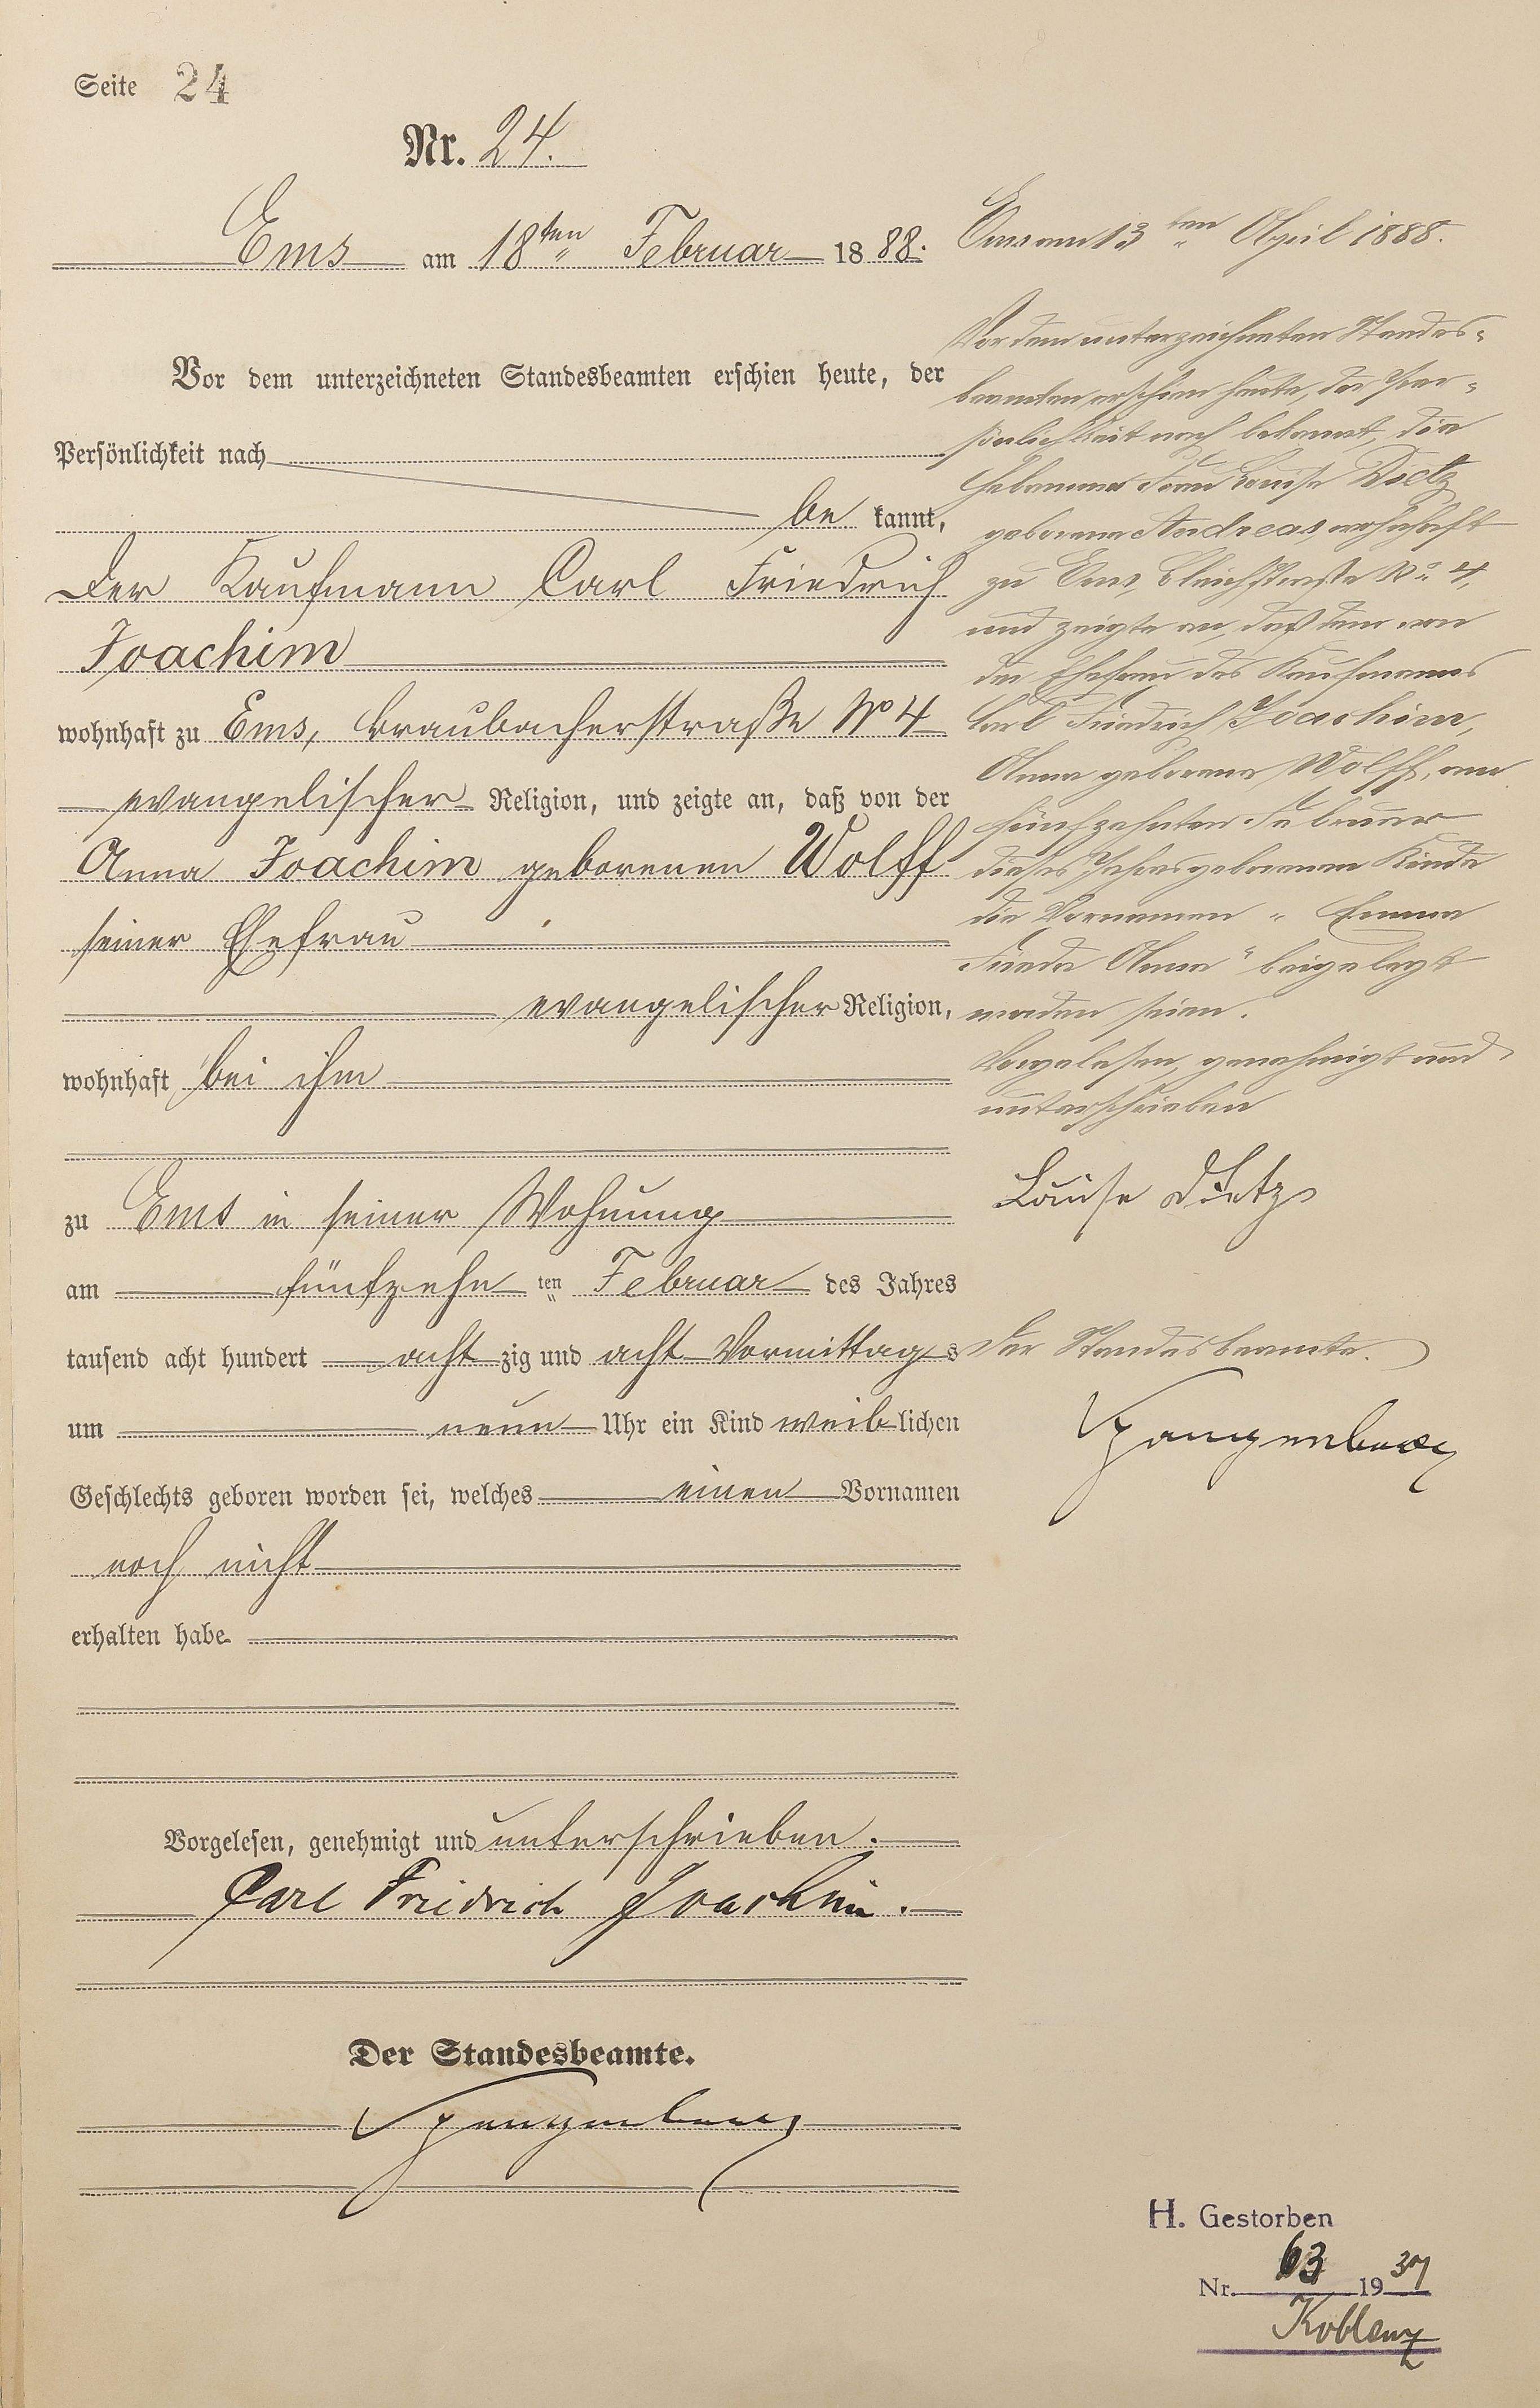 Seite 24
Nr. 24.
Ems am 18ten Februar 1888.
Vor dem unterzeichneten Standesbeamten erschien heute, der
Persönlichkeit nach
be kannt,
der Kaufmann Carl Friedrich
Joachim
wohnhaft zu Ems, Braubacherstraße No 4
evangelischer Religion, und zeigte an, daß von der
Anna Joachim geborenen Wolff
seiner Ehefrau
evangelischer Religion,
wohnhaft bei ihm
zu Ems in seiner Wohnung
am fünfzehn ten Februar des Jahres
tausend acht hundert acht zig und acht Vormittags
um neun Uhr ein Kind weiblichen
Geschlechts geboren worden sei, welches einen Vornamen
noch nicht
erhalten habe
Vorgelesen, genehmigt und unterschrieben.
Carl Friedrich Joachim.
Der Standesbeamte.
Spangenberg
Ems am 13ten April 1888.
Vor dem unterzeichneten Standes-
beamten erschien heute, der Per-
sönlichkeit nach bekannt, die
Hebamme Frau Louise Dietz
geborene Andreas, wohnhaft
zu Ems, Bleichstraße No 4,
und zeigte an, daß dem von
der Ehefrau des Kaufmanns
Carl Friedrich Joachim,
Anna geborene Wolff, am
fünfzehnten Februar
dieses Jahres geborenen Kinde
die Vornamen „Emma
Frieda Anna“ beigelegt
worden seien.
Vorgelesen, genehmigt und
unterschrieben
Louise Dietz
Der Standesbeamte.
Spangenberg
H. Gestorben
Nr. 63 1937
Koblenz